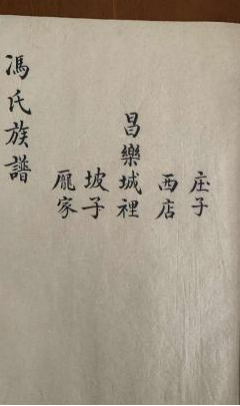 庄子
西店
昌樂城裡
坡子
龎家
馮氏族譜